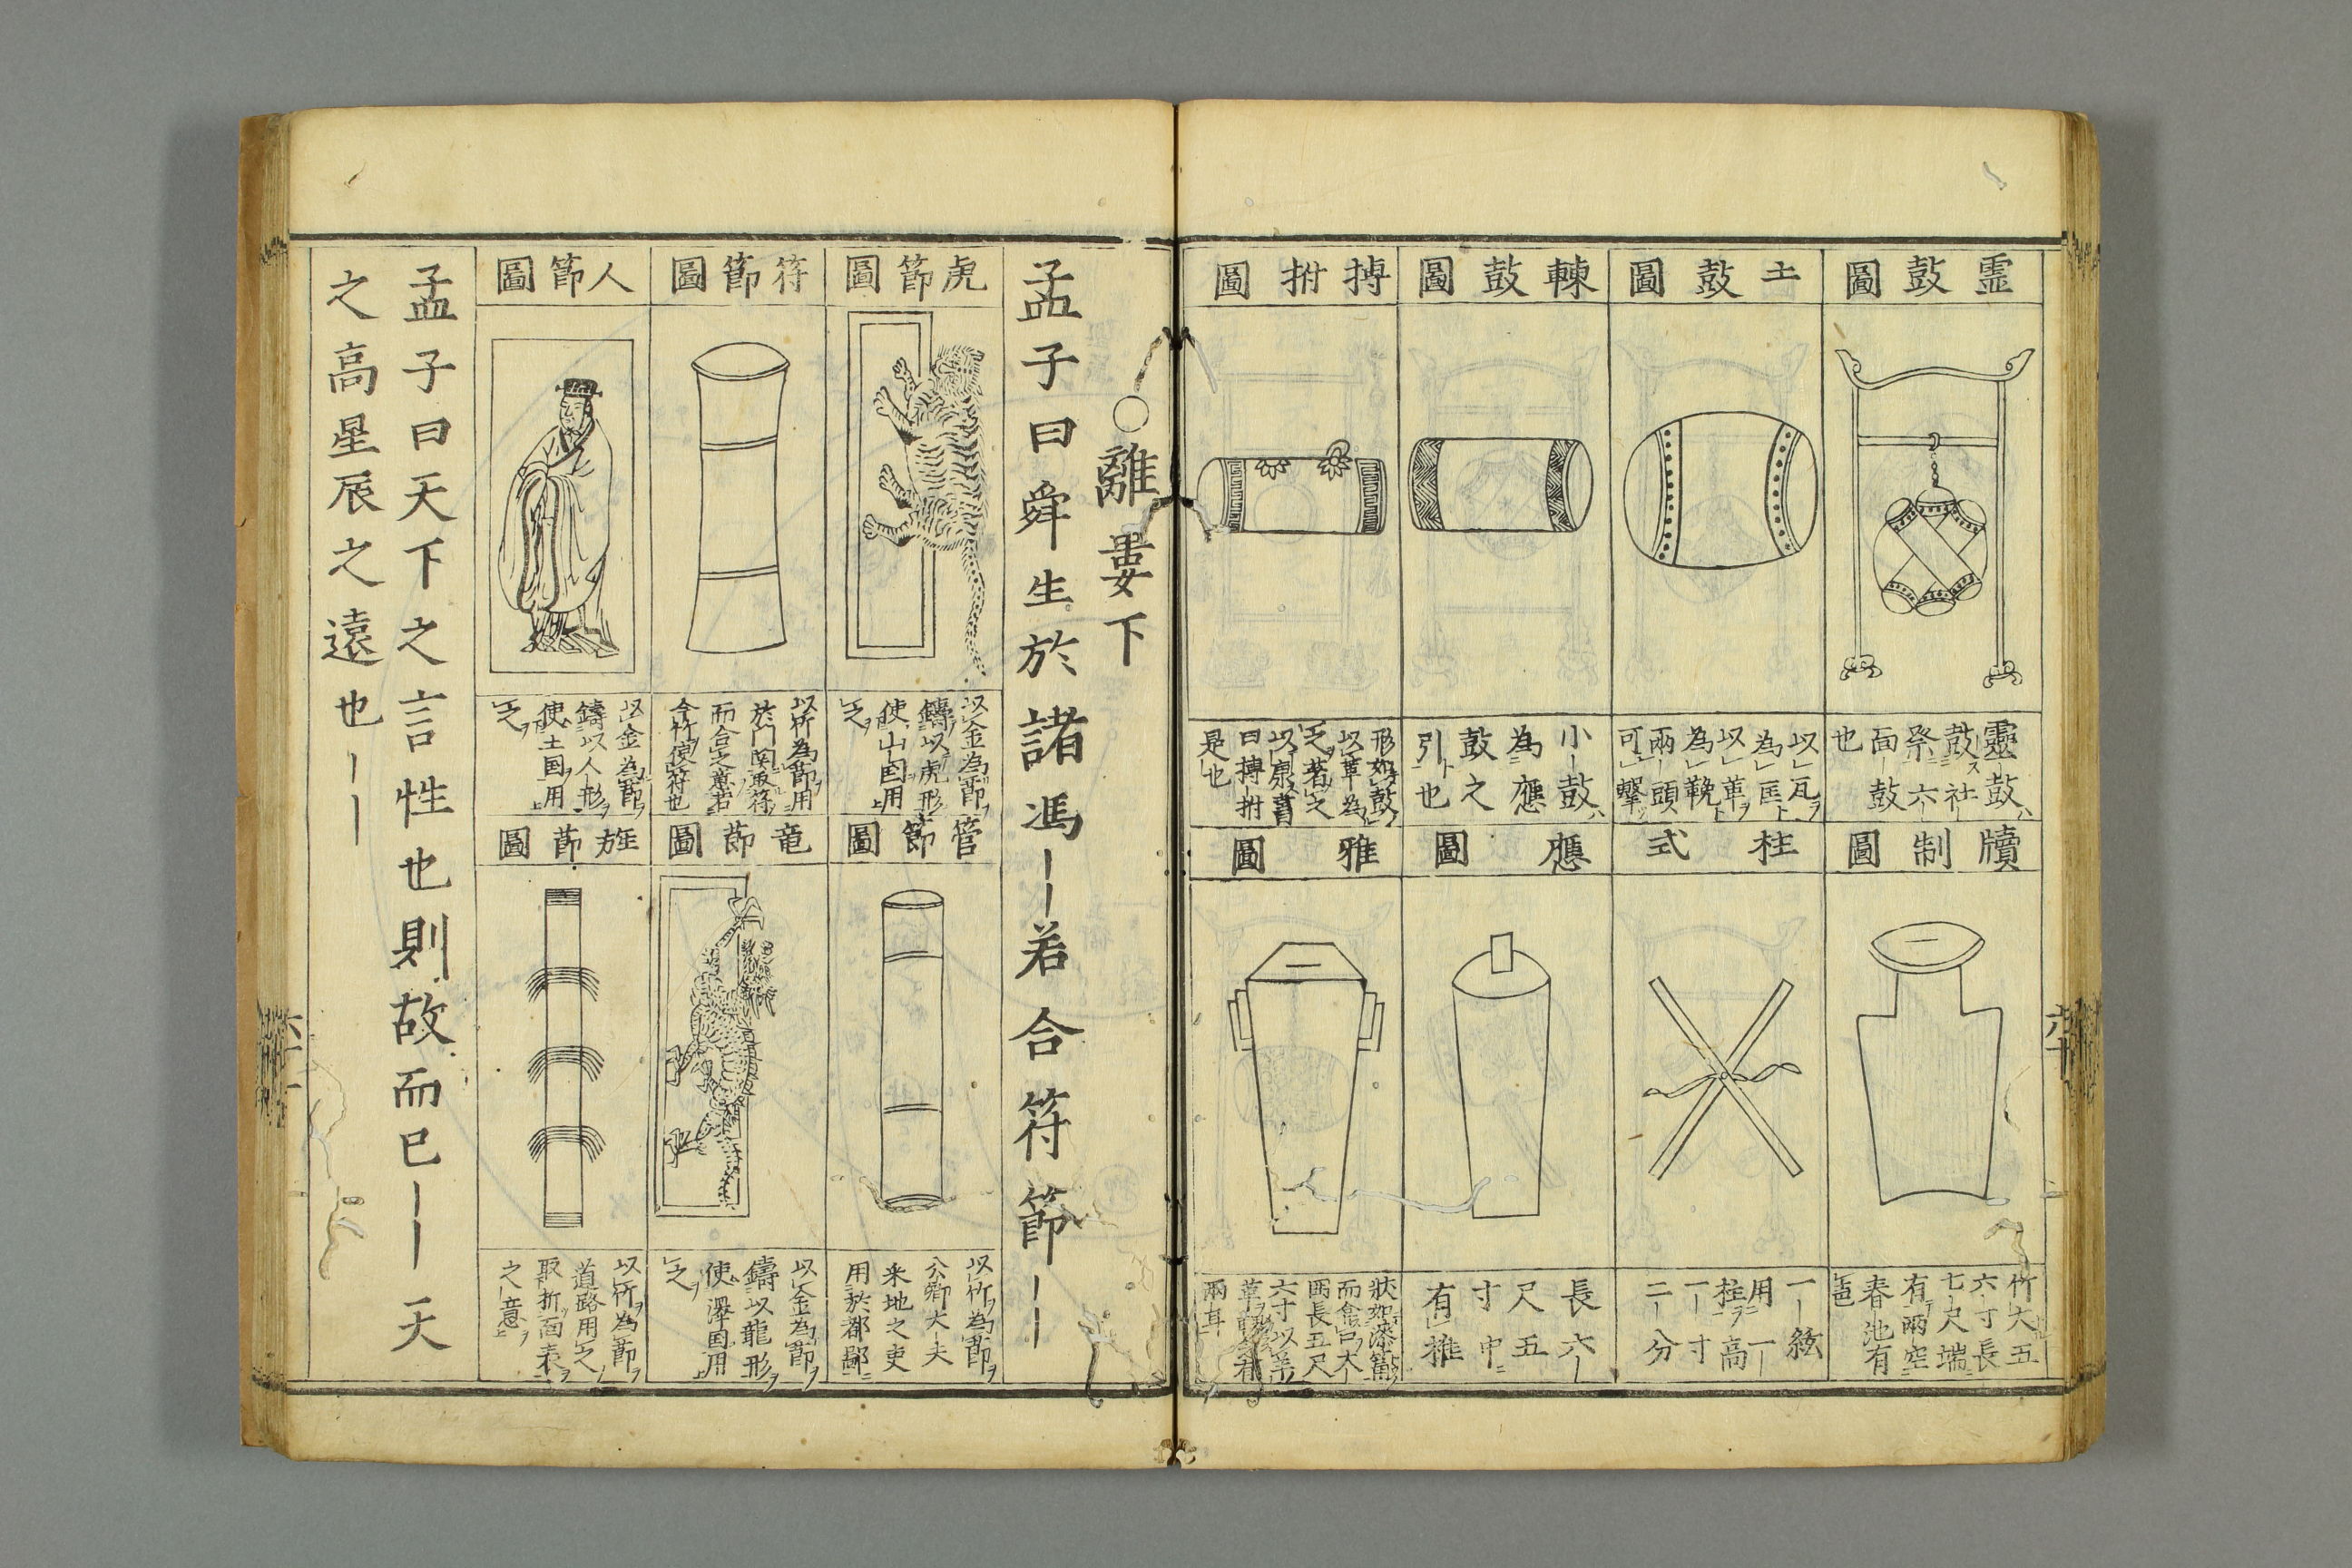 霊鼓圖
靈鼓ハ
鼓ス社
祭ニ六
面鼓
也
土鼓圖
以瓦ヲ
為匡ト
以革ヲ
為鞔ト
兩頭
可撃ツ
𣌾鼓圖
小鼓ハ
為應
鼓之
引ト也
搏拊圖
形如鼓ノ
以革為
之ヲ著之
以康ヲ書
曰搏拊
是也
牘制圖
竹大五
六寸長
七尺端ニ
有兩空
春池有
色
柱式
一絃
用一
柱ヲ高
一寸
二分
應圖
長六
尺五
寸中ニ
有椎
雅圖
狀如漆筩ノ
而弇口大
兩長五尺
六寸以羊
革ヲ鞔之有
兩耳
○離婁下
孟子曰舜生於諸馮ーー若合符節ーー
虎節圖
以金為節ヲ
鑄以虎形ヲ
使山国用
之ヲ
符節圖
以竹為節ヲ用
於門関取符
而合之意若
今竹使符也
人節圖
以金為節ヲ
鑄以人形ヲ
使土国用
之ヲ
管節圖
以竹ヲ為節ヲ
公卿大夫
采地之吏
用於都鄙ニ
竜節圖
以金為節ヲ
鑄以龍形ヲ
使澤国用
之ヲ
旌節圖
以竹ヲ為節ヲ
道路用之
取折而表
之意ヲ
孟子曰天下之言性也則故而已ーー天
之高星辰之遠也ーー